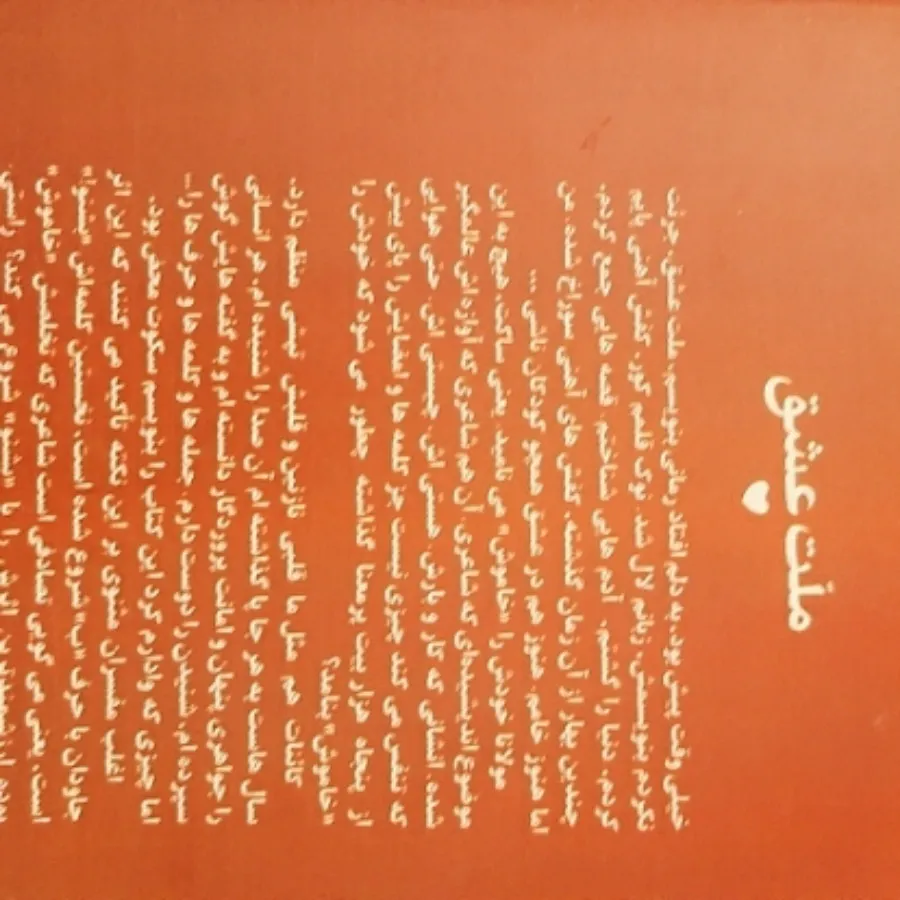 ملّت عشق
خیلی وقت پیش بود. به دلم افتاد رمانی بنویسم. ملت عشق. جرئت
نکردم بنویسمش. زبانم لال شد، نوک قلمم کور. کفش آهنی پایم
کردم. دنیا را گشتم. آدم هایی شناختم، قصه هایی جمع کردم.
چندین بهار از آن زمان گذشته. کفش های آهنی سوراخ شده. من
اما هنوز خامم، هنوز هم در عشق همچو کودکان ناشی...
مولانا خودش را «خاموش» می نامید. یعنی ساکت. هیچ به این
موضوع اندیشیده‌ای که شاعری، آن هم شاعری که آوازه‌اش عالمگیر
شده، انسانی که کار و بارش، هستی اش، چیستی اش، حتی هوایی
که تنفس می کند چیزی نیست جز کلمه ها و امضایش را پای بیش
از پنجاه هزار بیت پرمعنا گذاشته چطور می شود که خودش را
«خاموش» بنامد؟
کائنات هم مثل ما قلبی نازنین و قلبش تپشی منظم دارد.
سال هاست به هر جا پا گذاشته ام آن صدا را شنیده ام. هر انسانی
را جواهری پنهان و امانت پروردگار دانسته ام و به گفته هایش گوش
سپرده ام. شنیدن را دوست دارم. جمله ها و کلمه ها و حرف ها را...
اما چیزی که وادارم کرد این کتاب را بنویسم سکوت محض بود.
اغلب مفسران مثنوی بر این نکته تأکید می کنند که این اثر
جاودان با حرف «ب» شروع شده است. نخستین کلمه‌اش «بشنو!»
است. یعنی می گویی تصادفی است شاعری که تخلصش «خاموش»